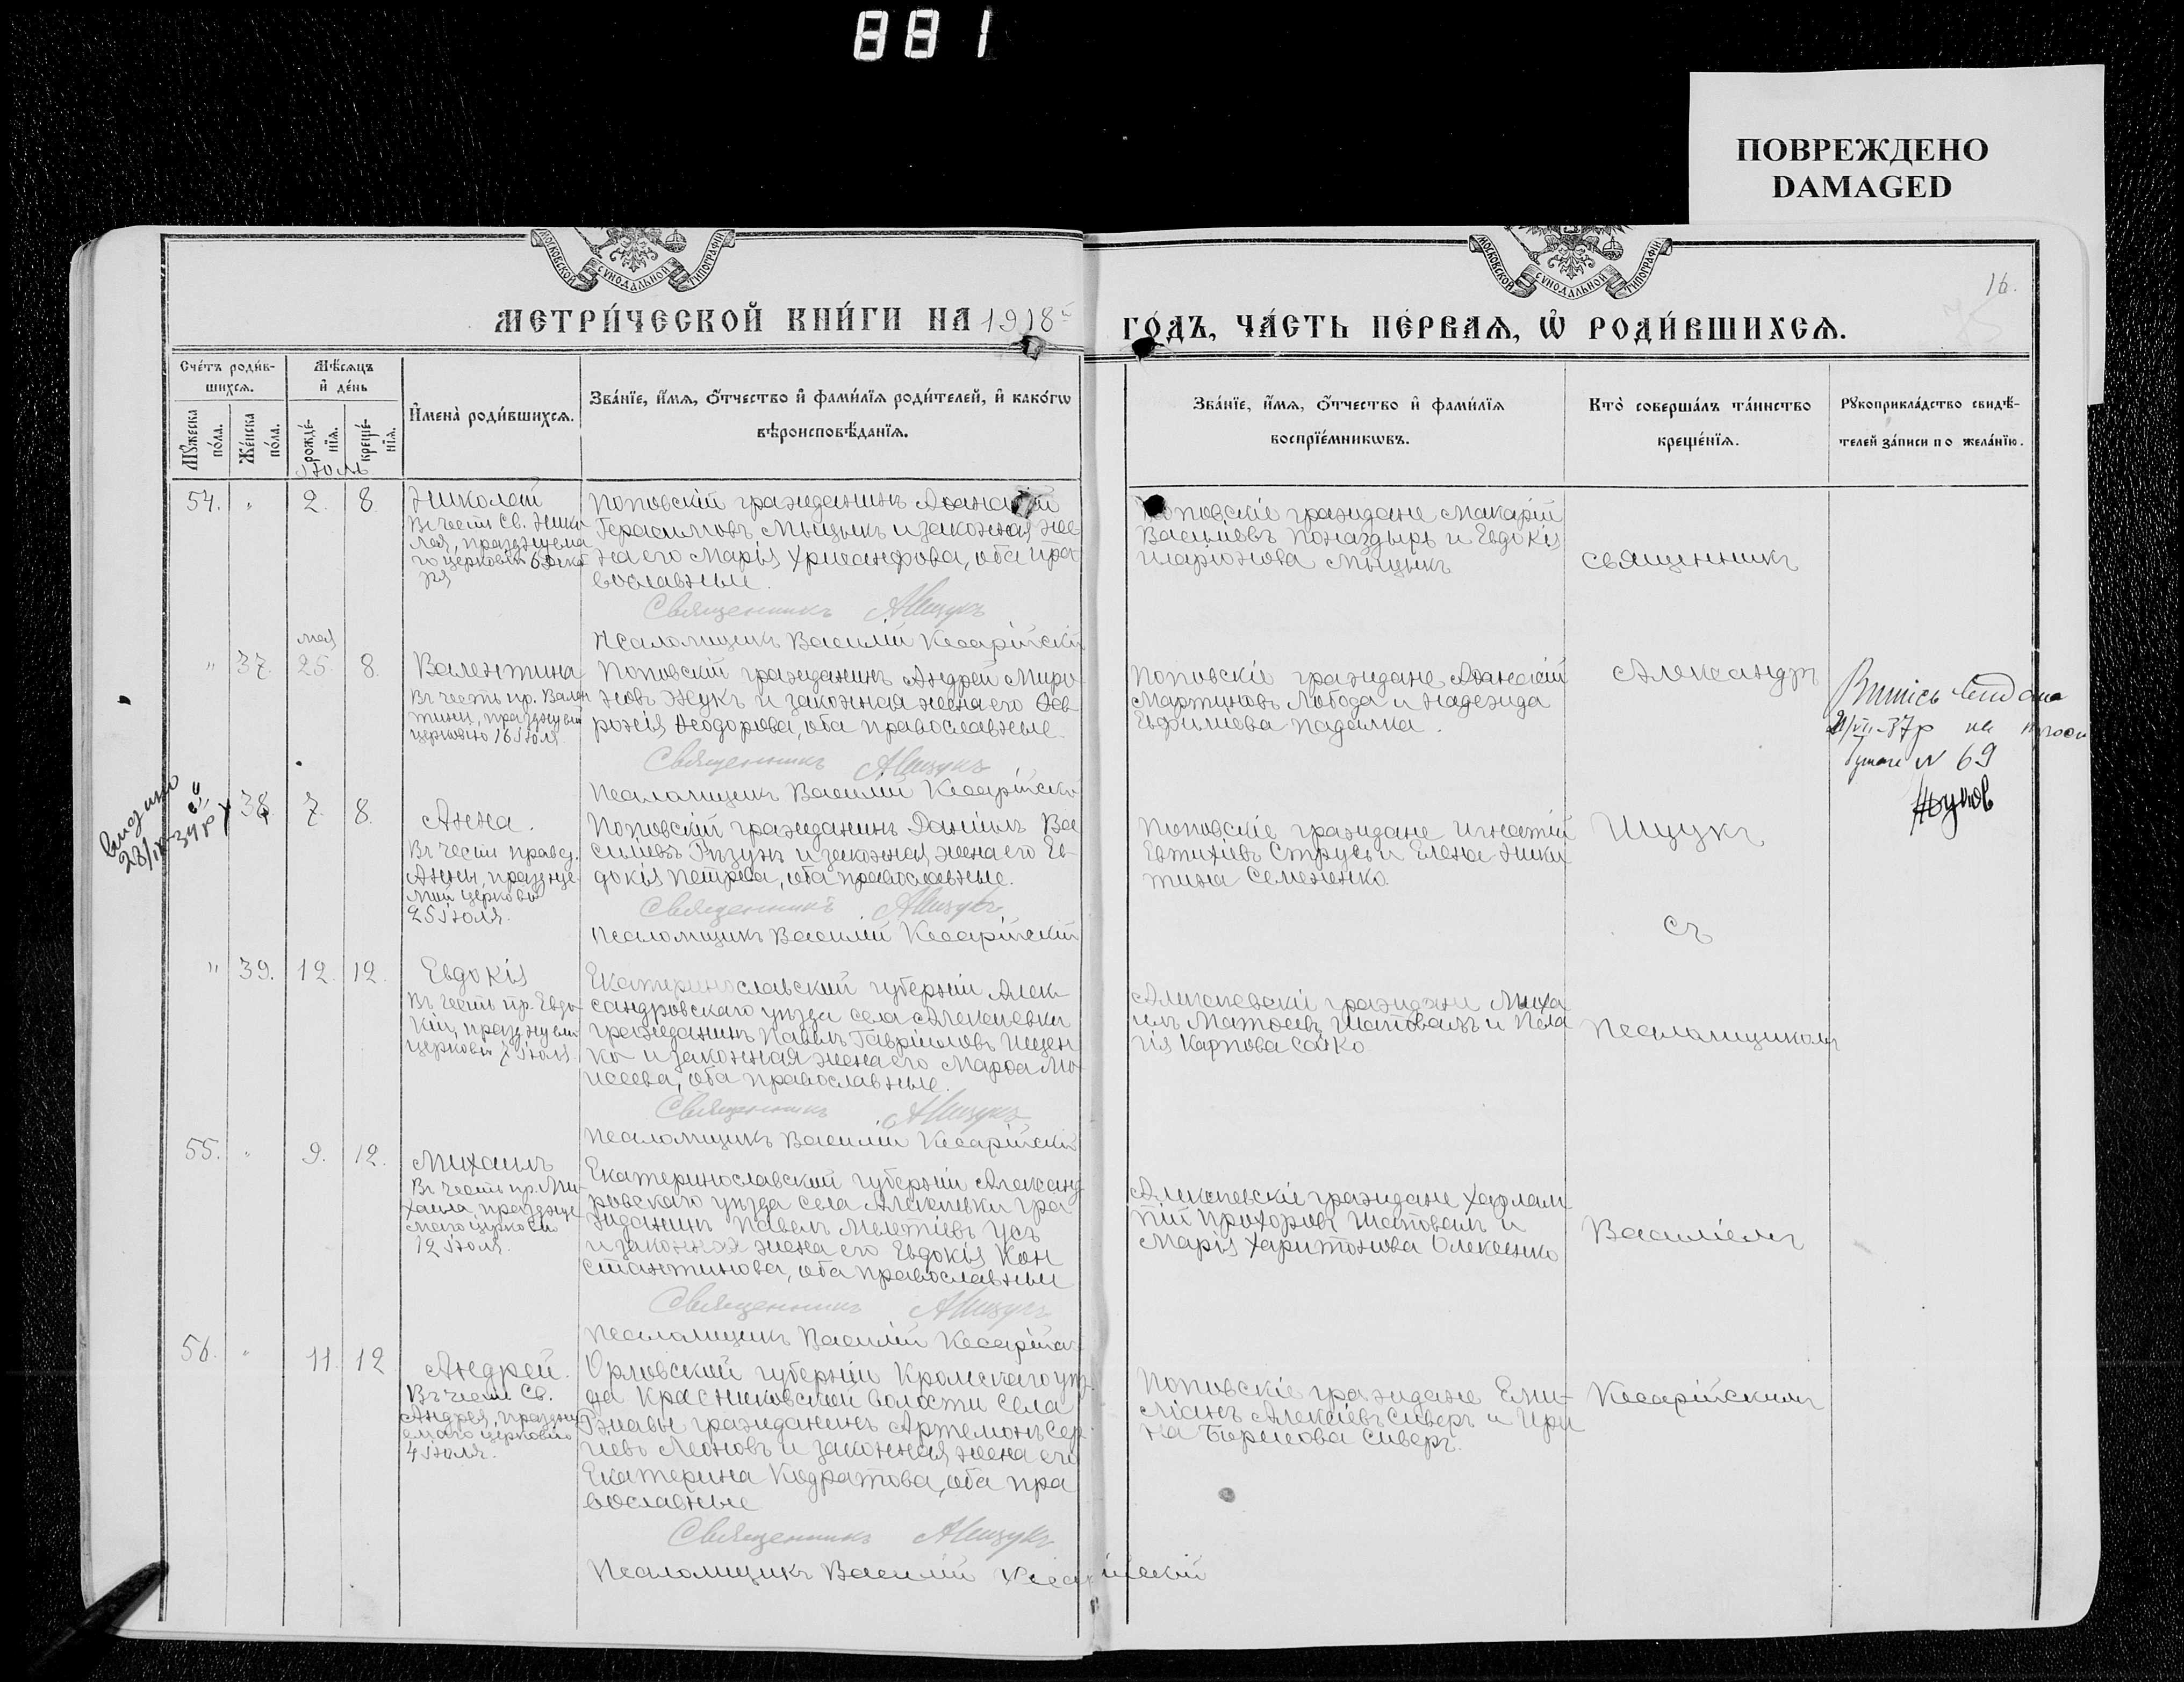 881
ПОВРЕЖДЕНО
DAMAGED
МОСКОВСКОЙ СѴНОДАЛЬНОЙ ТИПОГРАФІИ
МОСКОВСКОЙ СѴНОДАЛЬНОЙ ТИПОГРАФІИ
16.
МЕТРИ́ЧЕСКОЙ КНИ́ГИ НА 1918й
ГО́ДЪ, ЧА́СТЬ ПЕ́РВАѦ, Ѡ҆ РОДИ́ВШИХСѦ.
Сче́тъ роди́в-
шихсѧ.
Мѣ́сѧцъ
и҆ де́нь
Мꙋ́жеска по́ла.
Же́нска по́ла.
рожде́-нїѧ.
креще́-нїѧ.
И҆мена̀ роди́вшихсѧ.
Зва́нїе, и҆́мѧ, ѻ҆́тчество и҆ фами́лїѧ роди́телей, и҆ како́гѡ
вѣроисповѣ́данїѧ.
Зва́нїе, и҆́мѧ, ѻ҆́тчество и҆ фами́лїѧ
воспрїе́мникѡвъ.
Кто̀ соверша́лъ та́инство
креще́нїѧ.
Рꙋкоприкла́дство свидѣ́-
телей за́писи по жела́нїю.
Іюль
54. " 2. 8. Николай
Въ честь Св. Нико
лая, празднуема
го церковію 6 Дека
ря
Поповскій гражданинъ Аѳанасій
Герасимовъ Мыцыкъ и законная же
на его Марія Хрисанфова, оба пра
вославные.
Священникъ АШуукъ
Псаломщикъ Василій Кесарійскій
Поповскіе граждане Макарій
Васильевъ Поназдырь и Евдокія
Иларіонова Мыцыкъ
Священникъ
мая
" 37. 25. 8. Валентина
Въ честь пр. Вален
тины, празднуем
церковію 16 Іюля
Поповскій гражданинъ Андрей Миро
новъ Жукъ и законная жена его Фев
ронія Ѳеодорова, оба православные.
Священникъ
Псаломщикъ Василій Кесарійскій
Поповскіе граждане Аѳанасій
Мартиновъ Лобода и Надежда
Евфиміева Падалка.
Александръ
37р на
N 69
Видано
28/IX-34р
38 7. 8. Анна.
Въ честь правед.
Анны, празднуе
мой церковію
25 Іюля.
Поповскій гражданинъ Даніилъ Ва
сильевъ Рѣзунъ и законная жена его Ев-
докія Петрова, оба православные.
Священникъ
Псаломщикъ Василій Кесарійскій
Поповскіе граждане Игнатій
Евтихіевъ Струсь и Елена Ники
тина Семененко
съ
" 39. 12. 12. Евдокія
Въ честь пр. Евдо-
кіи, празднуем
церковію 7 Іюля
Екатеринославской губерніи Алек-
сандровскаго уѣзда села Алексѣевки
гражданинъ Павелъ Гавріиловъ Ищен
ко и законная жена его Марѳа Мо
исеева, оба православные.
Священникъ
Псаломщикъ Василій Кесарійскій
Алексѣевскіе граждане Миха
илъ Матѳеевъ Шаповалъ и Пела
гія Карпова Сайко
Псаломщикомъ
55. " 9. 12. Михаилъ
Въ честь пр. Ми
хаила, празднуе
маго церковію
12 Іюля.
Екатеринославской губерніи Александ
ровскаго уѣзда села Алексѣевки гра
жданинъ Павелъ Мелетіевъ Усъ
и законная жена его Евдокія Кон
стантинова, оба православные
Священникъ
Псаломщикъ Василій Кесарійск
Алексѣевскіе граждане Харлам
пій Прохоровъ Шаповалъ и
Марія Харитонова Олексенко
Василіемъ
56. " 11. 12 Андрей.
Въ честь Св.
Андрея, праздну
емаго церковію
4 Іюля.
Орловской губерніи Кромскаго уѣз-
да Красниковской волости села
гражданинъ Артемонъ Сер
гіевъ Леоновъ и законная жена его
Екатерина Кодратова, оба пра
вославные
Священникъ
Псаломщикъ Василій Кесарійскій
Поповскіе граждане Еми-
ліанъ Алексіевъ Сиверъ и Ири
на Борисова Сиверъ.
Кесарійскимъ